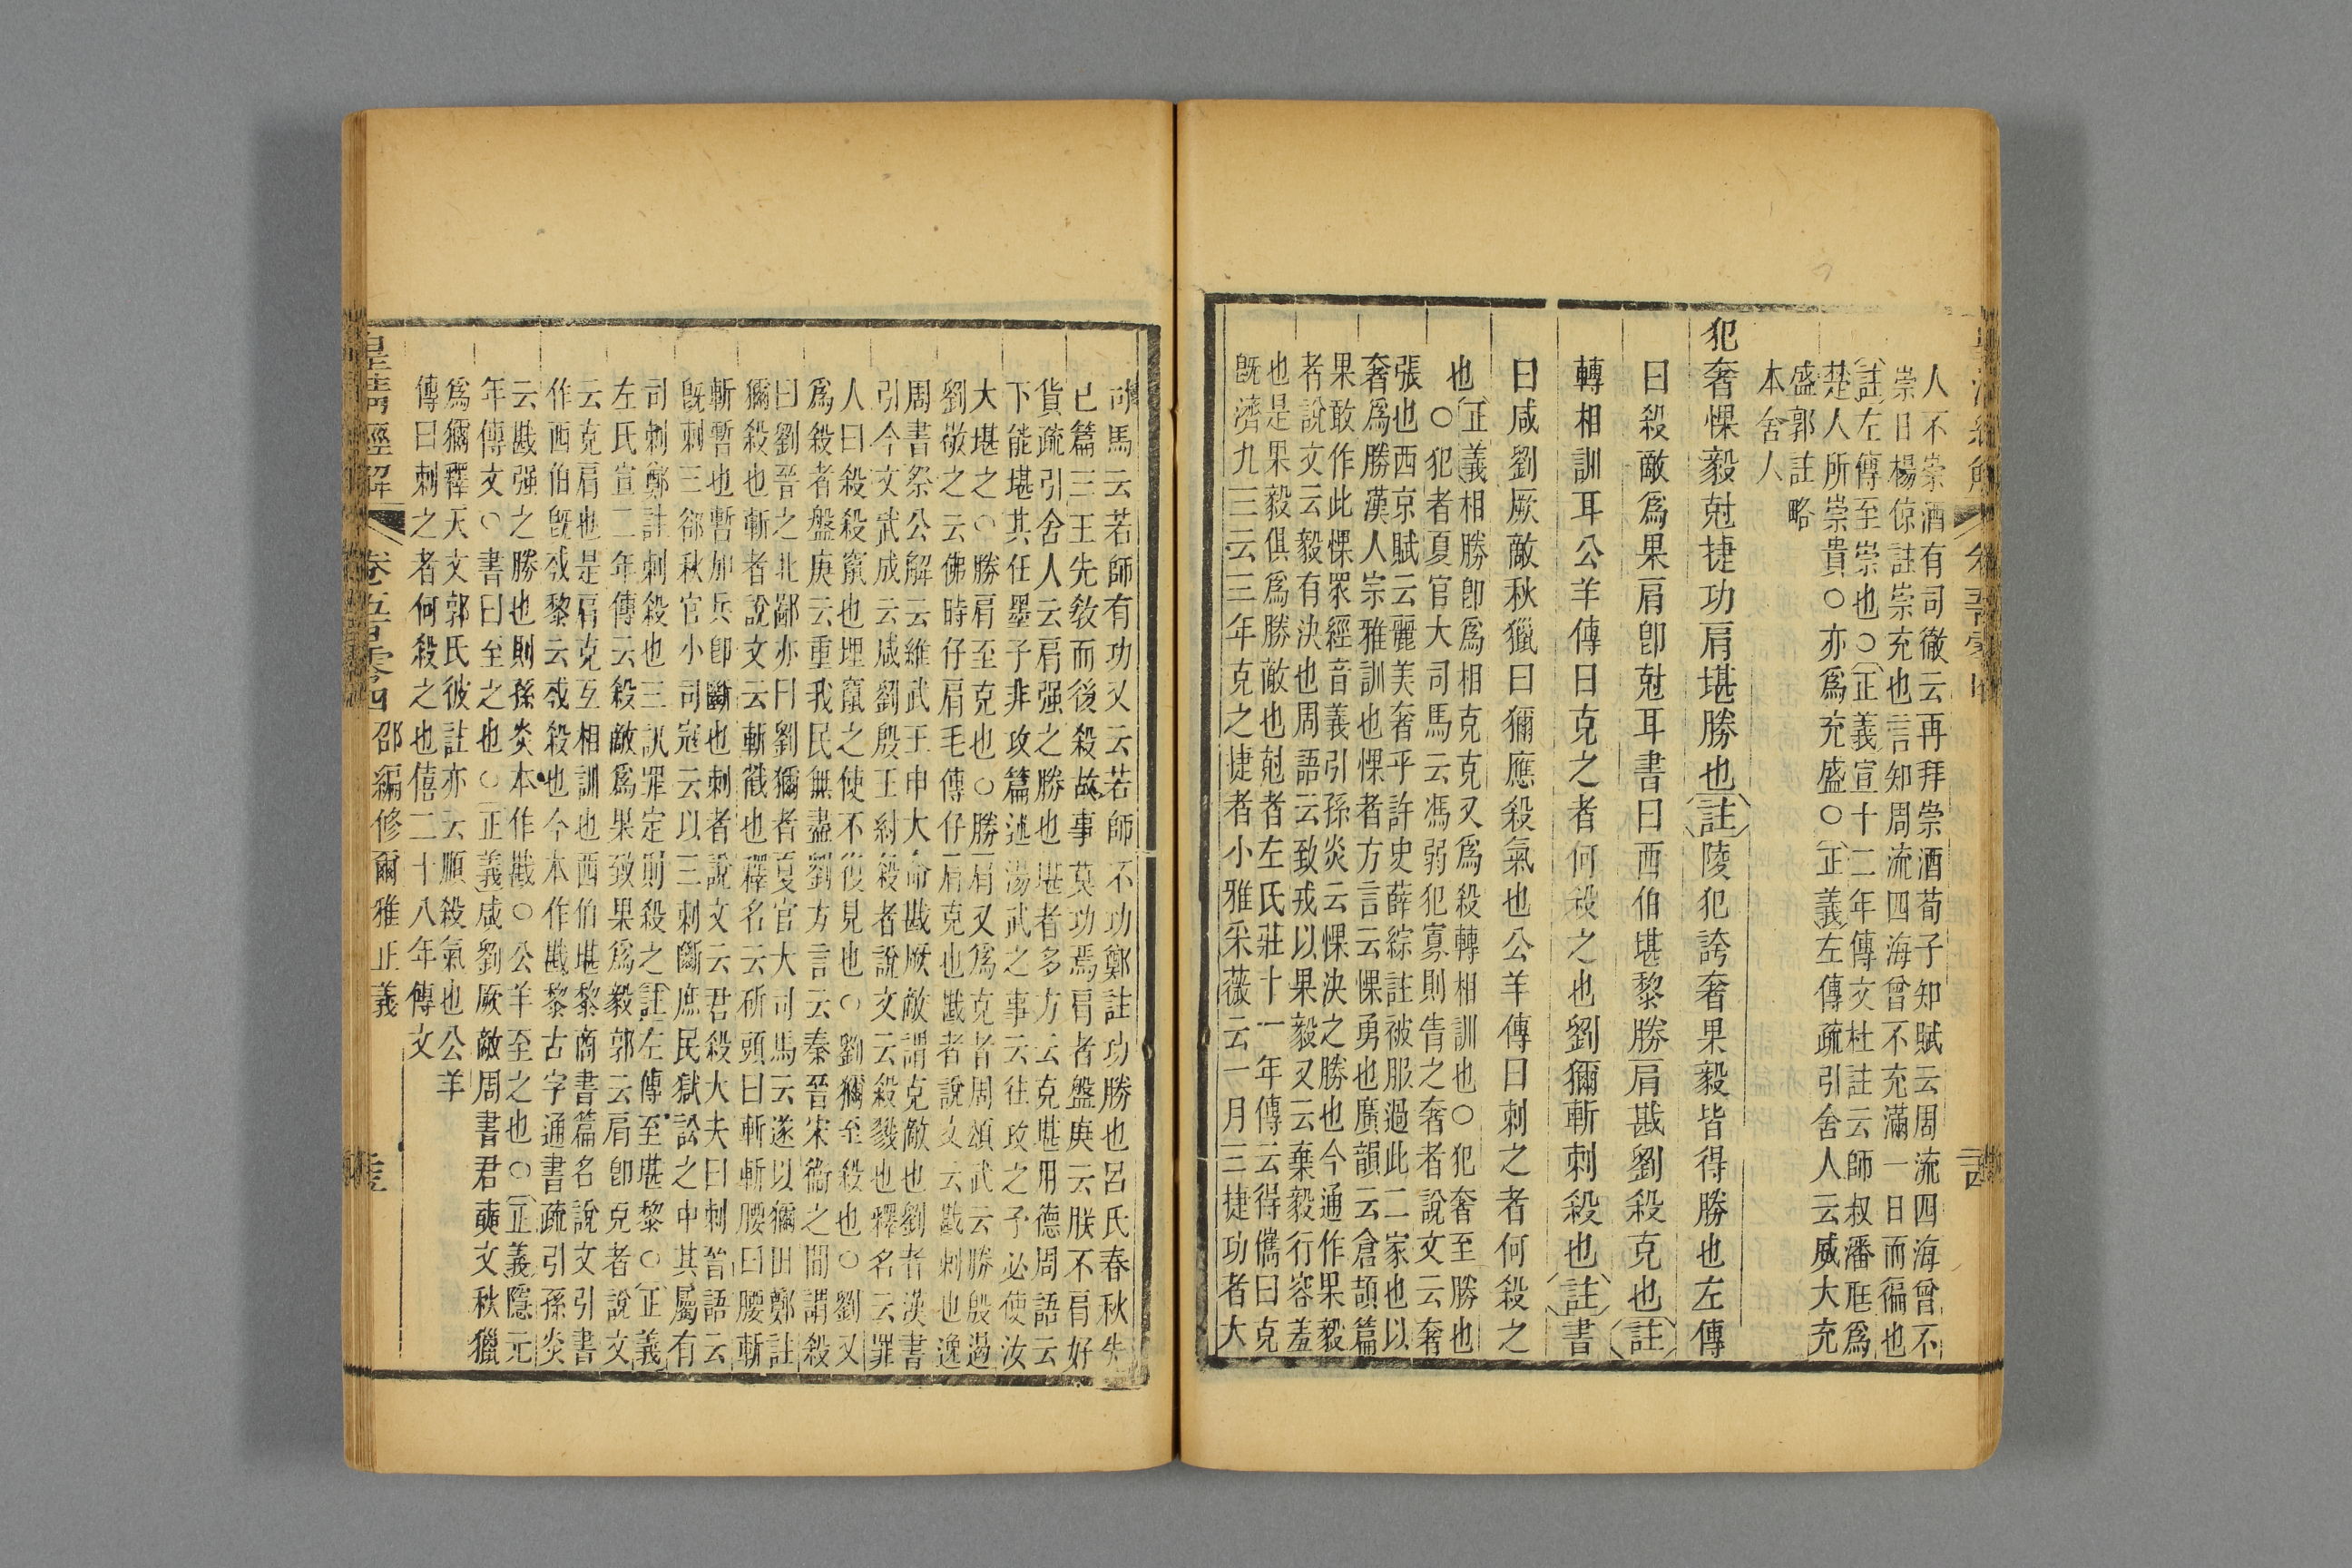 人不崇酒有司徹云再拜崇酒荀子知賦云周流四海曾不
崇日楊倞註崇充也言知周流四海曾不充滿一日而徧也
註左傳至崇也○正義宣十二年傳文杜註云師叔潘尫爲
楚人所崇貴○亦爲充盛○正義左傳疏引舍人云威大充
盛郭註略
本舍人
犯奢惈毅尅捷功肩堪勝也註陵犯誇奢果毅皆得勝也左傳
曰殺敵爲果肩卽尅耳書曰西伯堪黎勝肩戡劉殺克也註
轉相訓耳公羊傳曰克之者何殺之也劉獮斬刺殺也註書
曰咸劉厥敵秋獵曰獮應殺氣也公羊傳曰刺之者何殺之
也正義相勝卽爲相克克又爲殺轉相訓也○犯奢至勝也
○犯者夏官大司馬云馮弱犯寡則眚之奢者說文云奢
張也西京賦云麗美奢乎許史薛綜註被服過此二家也以
奢爲勝漢人宗雅訓也惈者方言云惈勇也廣韻云倉頡篇
果敢作此惈眾經音義引孫炎云惈決之勝也今通作果毅
者說文云毅有決也周語云致戎以果毅又云棄毅行容羞
也是果毅俱爲勝敵也尅者左氏莊十一年傳云得儁曰克
旣濟九三云三年克之捷者小雅采薇云一月三捷功者大
司馬云若師有功又云若師不功鄭註功勝也呂氏春秋先
已篇三王先敎而後殺故事莫功焉肩者盤庚云朕不肩好
貨疏引舍人云肩强之勝也堪者多方云克堪用德周語云
下能堪其任墨子非攻篇述湯武之事云往攻之予必使汝
大堪之○勝肩至克也○勝肩又爲克者周頌武云勝殷遏
劉敬之云佛時仔肩毛傳仔肩克也戡者說文云戡刺也逸
周書祭公解云維武王申大命戡厥敵謂克敵也劉者漢書
引今文武成云咸劉殷王紂殺者說文云殺戮也釋名云罪
人曰殺殺竄也埋竄之使不復見也○劉獮至殺也○劉又
爲殺者盤庚云重我民無盡劉方言云秦晉宋衞之閒謂殺
曰劉晉之北鄙亦曰劉獮者夏官大司馬云遂以獮田鄭註
獮殺也斬者說文云斬截也釋名云斫頭曰斬斬腰曰腰斬
斬暫也暫加兵卽斷也刺者說文云君殺大夫曰刺晉語云
旣刺三郤秋官小司寇云以三刺斷庶民獄訟之中其屬有
司刺鄭註刺殺也三訊罪定則殺之註左傳至堪黎○正義
左氏宣二年傳云殺敵爲果致果爲毅郭云肩卽克者說文
云克肩也是肩克互相訓也西伯堪黎商書篇名說文引書
作西伯旣𢦟黎云𢦟殺也今本作戡黎古字通書疏引孫炎
云戡强之勝也則孫炎本作戡○公羊至之也○正義隱元
年傳文○書曰至之也○正義咸劉厥敵周書君奭文秋獵
爲獮釋天文郭氏彼註亦云順殺氣也公羊
傳曰刺之者何殺之也僖二十八年傳文
皇淸經解 卷五百零四 邵編修爾雅正義